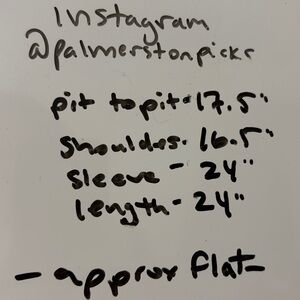 Instagram
@palmerstonpicks
pit to pit-17.5"
shoulder-16.5"
sleeve - 24"
length - 24"
- approx flat-